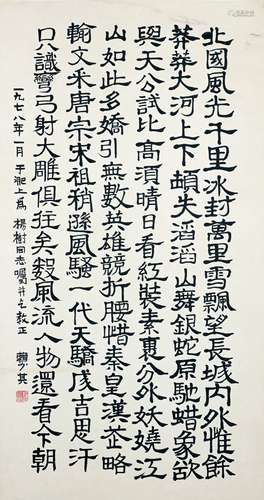 北國風光千里冰封萬里雪飄望長城內外惟餘
莽莽大河上下頓失滔滔山舞銀蛇原馳蜡象欲
與天公試比高須晴日看紅裝素裹分外妖嬈江
山如此多嬌引無數英雄競折腰惜秦皇漢武略
輸文采唐宗宋祖稍遜風騷一代天驕成吉思汗
只識彎弓射大雕俱往矣數風流人物還看今朝
一九七八年一月于肥上為楊樹同志囑并乞教正 賴少其